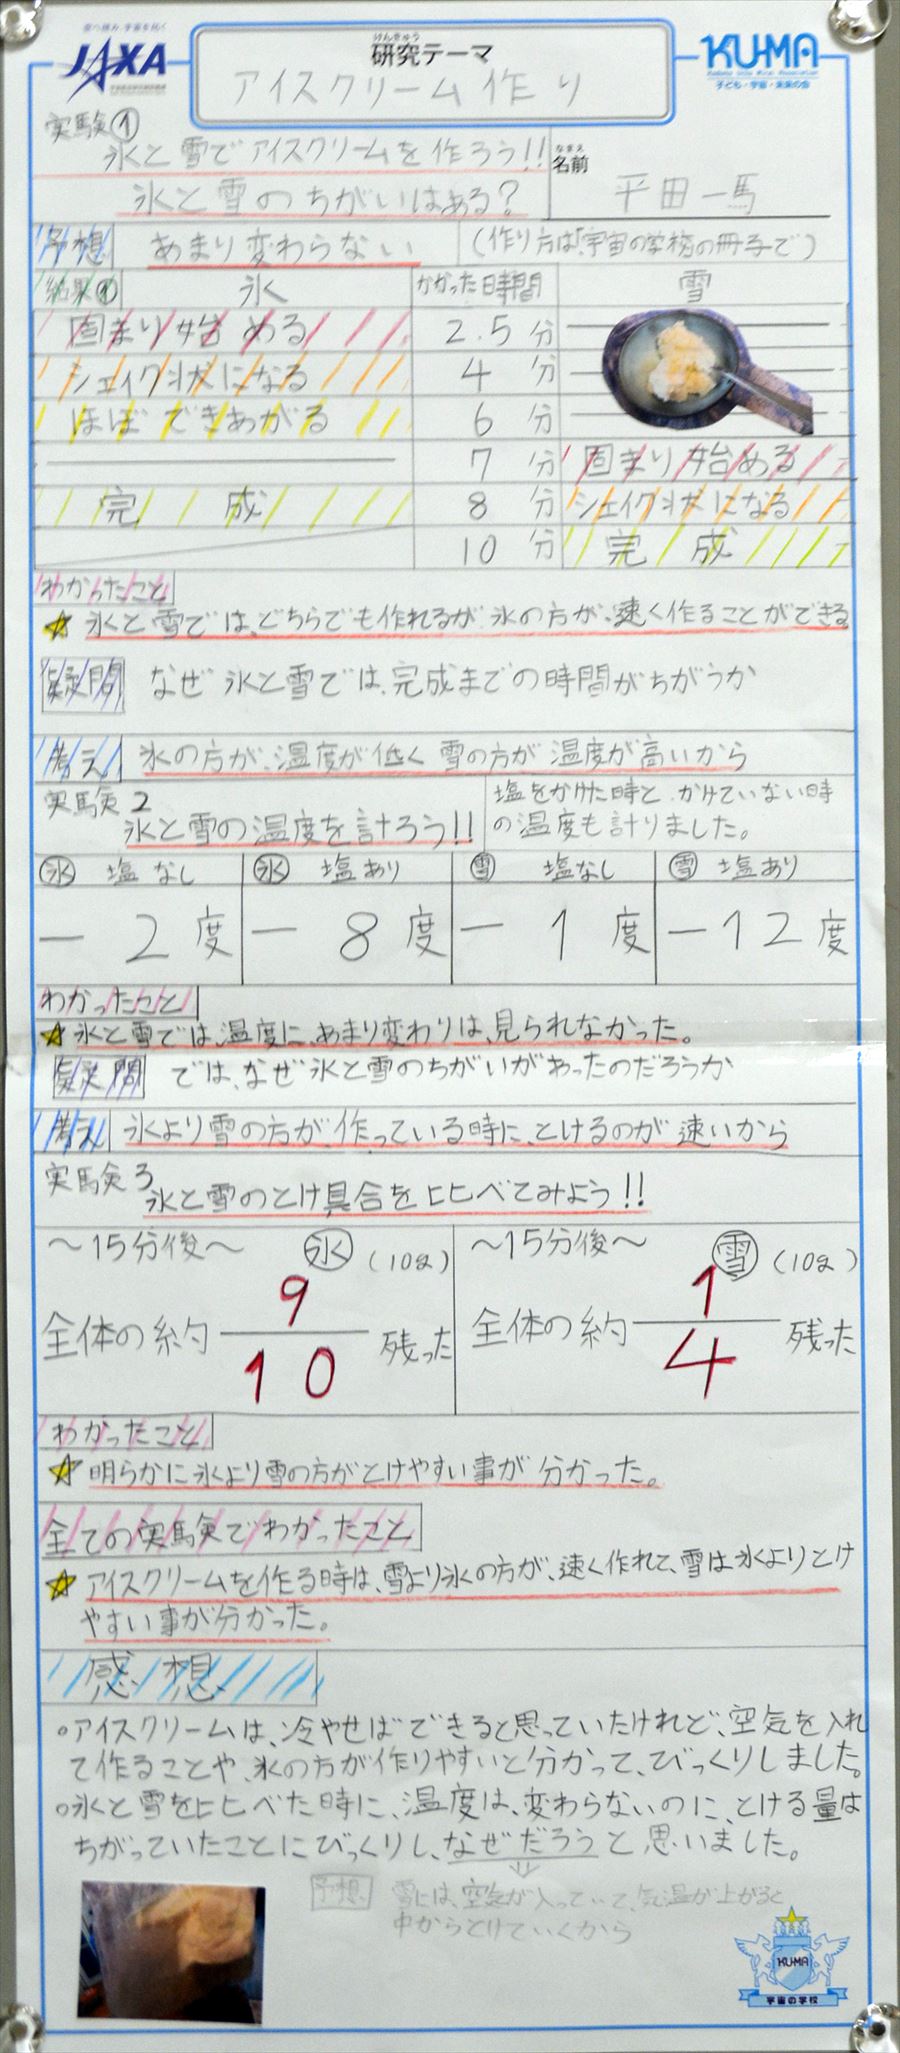 宙へ挑み、宇宙を拓く
JAXA
けんきゅう
研究テーマ
アイスクリーム作り
KU-MA
子ども・宇宙・未来の会
実験①
氷と雪でアイスクリームを作ろう!!
氷と雪のちがいはある?
なまえ
名前
平田一馬
予想 あまり変わらない (作り方は「宇宙の学校の冊子で)
結果① 氷 かかった時間 雪
固まり始める 2.5分
シェイク状になる 4分
ほぼできあがる 6分
7分 固まり始める
完成 8分 シェイク状になる
10分 完成
わかったこと
氷と雪では、どちらでも作れるが氷の方が、速く作ることができる
疑問 なぜ氷と雪では、完成までの時間がちがうか
考え 氷の方が、温度が低く雪の方が温度が高いから
実験2
氷と雪の温度を計ろう!!
塩をかけた時と、かけていない時
の温度も計りました。
氷 塩なし 氷 塩あり 雪 塩なし 雪 塩あり
-2度 -8度 -1度 -12度
わかったこと
氷と雪では、温度に、あまり変わりは、見られなかった。
疑問 では、なぜ氷と雪のちがいがあったのだろうか
考え 氷より雪の方が、作っている時に、とけるのが速いから
実験3
氷と雪のとけ具合を比べてみよう!!
〜15分後〜 氷 (10g) 〜15分後〜 雪 (10g)
全体の約 9/10 残った 全体の約 1/4 残った
わかったこと
明らかに氷より雪の方がとけやすい事が分かった。
全ての実験でわかったこと
アイスクリームを作る時は、雪より氷の方が、速く作れて、雪は氷よりとけ
やすい事が分かった。
感想
アイスクリームは、冷やせばできると思っていたけれど、空気を入れ
て作ることや、氷の方が作りやすいと分かって、びっくりしました。
氷と雪を比べた時に、温度は、変わらないのに、とける量は
ちがっていたことにびっくりし、なぜだろうと思いました。
予想 雪には、空気が入っていて、気温が上がると
中からとけていくから
KU-MA
宇宙の学校